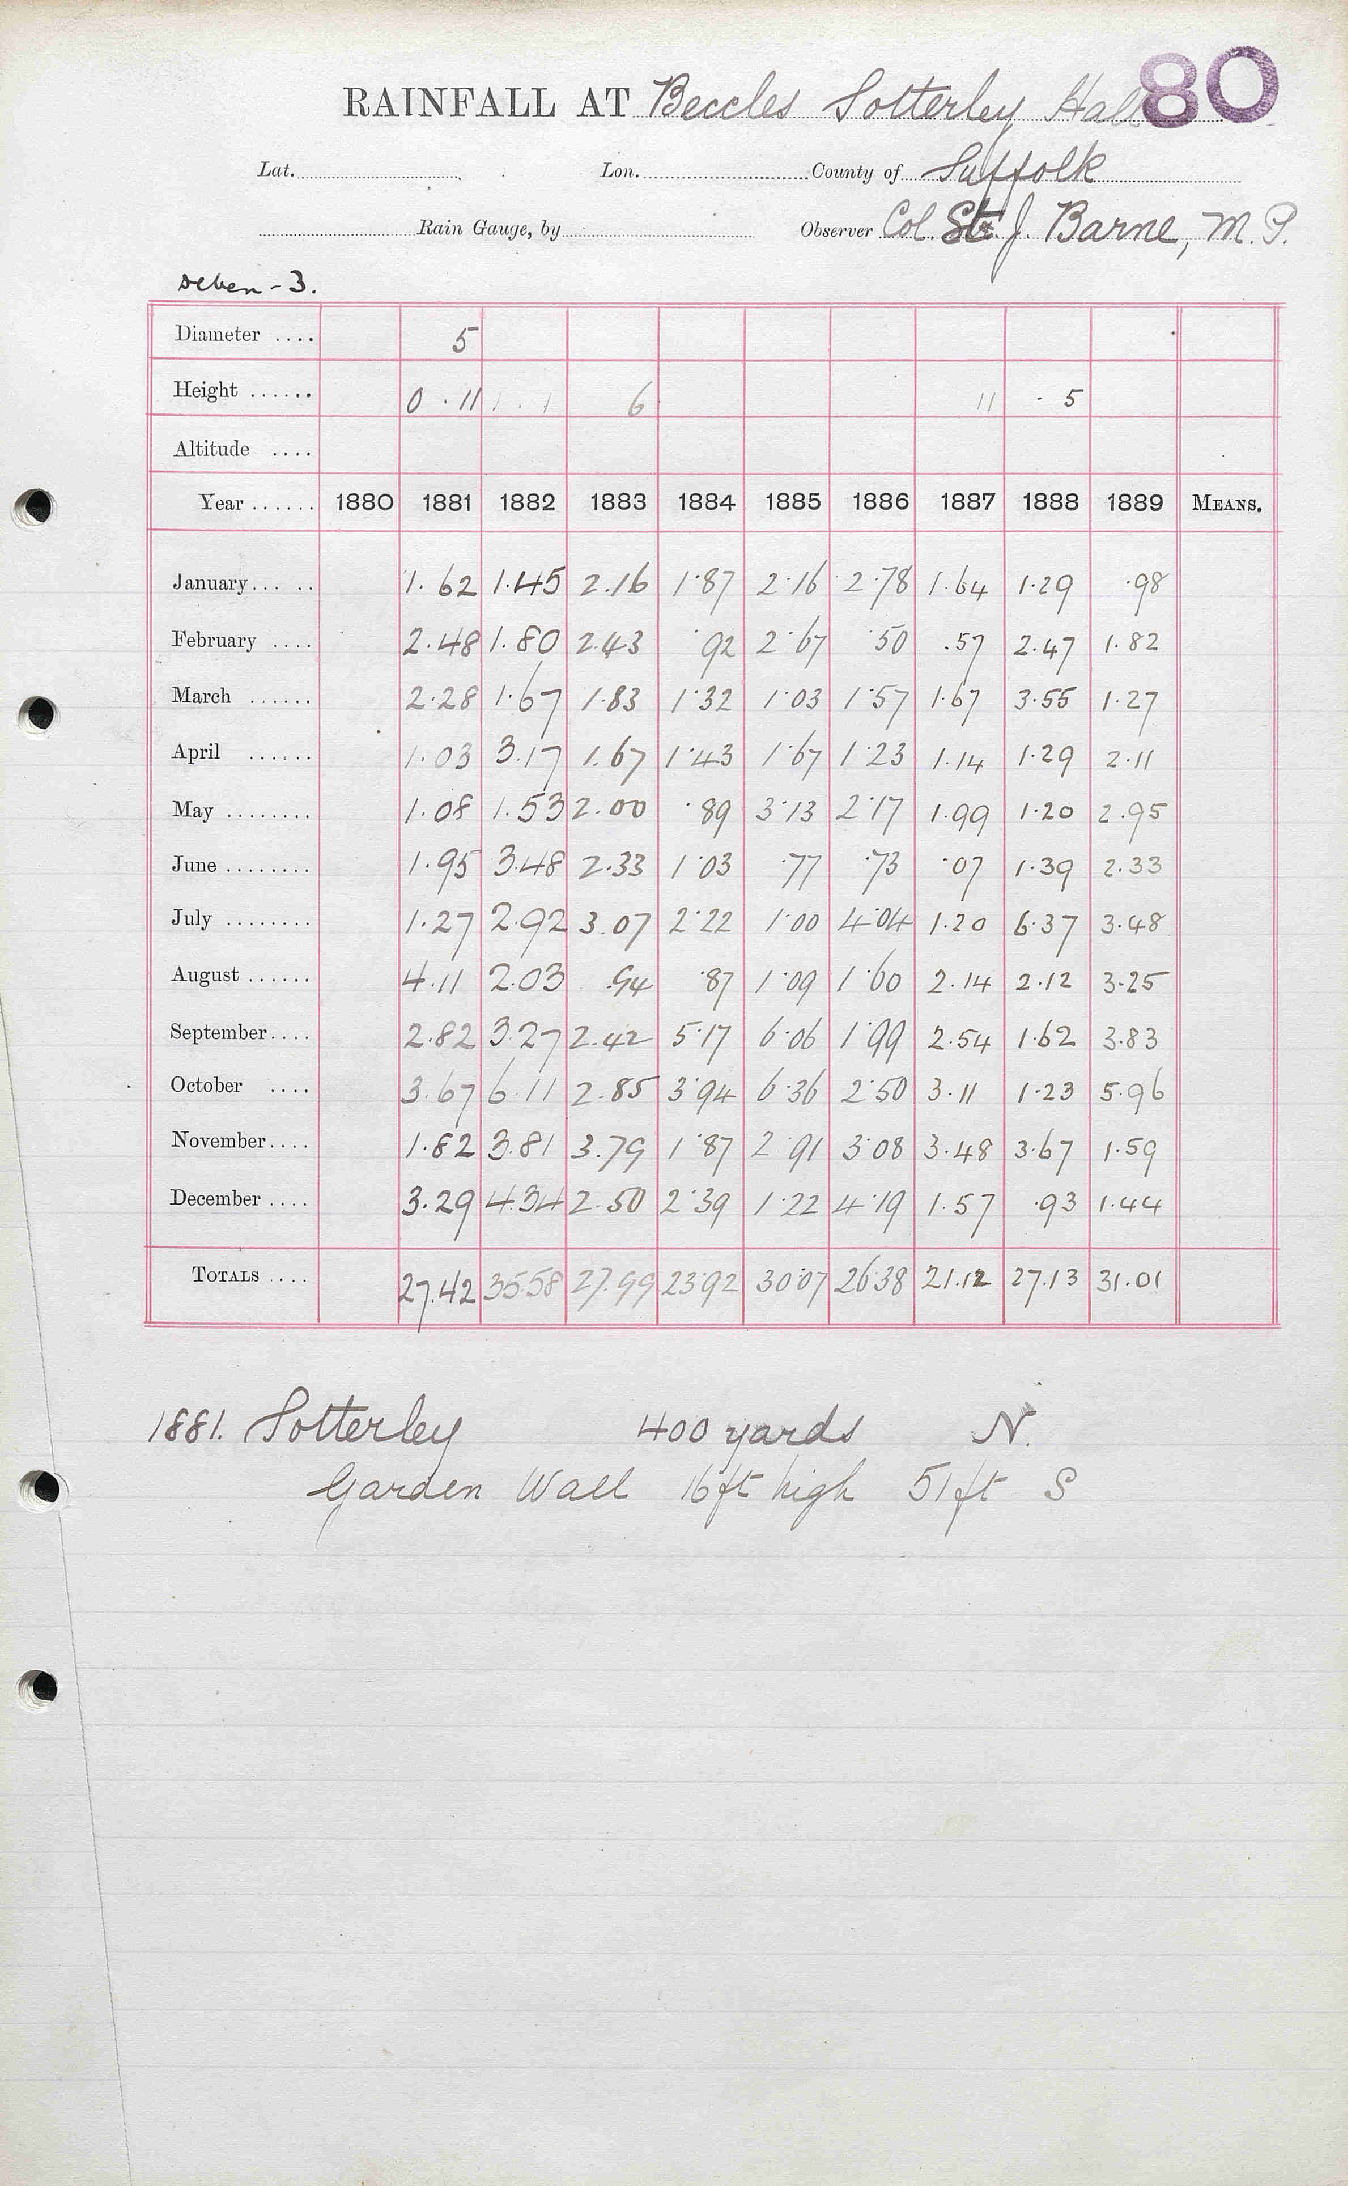 80
RAINFALL AT Beccles Sotterley Hall
Lat. Lon. County of Suffolk
Rain Gauge, by Observer Col. St. J. Barne, M.P.
Deben - 3.
Diameter .... 5
Height ...... 0 . 11 6 11 . 5
Altitude ....
Year ...... 1880 1881 1882 1883 1884 1885 1886 1887 1888 1889 MEANS.
January... .. 1.62 1.45 2.16 1.87 2.16 2.78 1.64 1.29 .98
February .... 2.48 1.80 2.43 .92 2.67 .50 .57 2.47 1.82
March ...... 2.28 1.67 1.83 1.32 1.03 1.57 1.67 3.55 1.27
April ...... 1.03 3.17 1.67 1.43 1.67 1.23 1.14 1.29 2.11
May ........ 1.08 1.53 2.00 .89 3.13 2.17 1.99 1.20 2.95
June ........ 1.95 3.48 2.33 1.03 .77 .73 .07 1.39 2.33
July ........ 1.27 2.92 3.07 2.22 1.00 4.04 1.20 6.37 3.48
August ...... 4.11 2.03 .94 .87 1.09 1.60 2.14 2.12 3.25
September.... 2.82 3.27 2.42 5.17 6.06 1.99 2.54 1.62 3.83
October .... 3.67 6.11 2.85 3.94 6.36 2.50 3.11 1.23 5.96
November.... 1.82 3.81 3.79 1.87 2.91 3.08 3.48 3.67 1.59
December .... 3.29 4.34 2.50 2.39 1.22 4.19 1.57 .93 1.44
TOTALS .... 27.42 35.58 27.99 23.92 30.07 26.38 21.12 27.13 31.01
1881. Sotterley 400 yards N.
Garden Wall 16ft high 51ft S